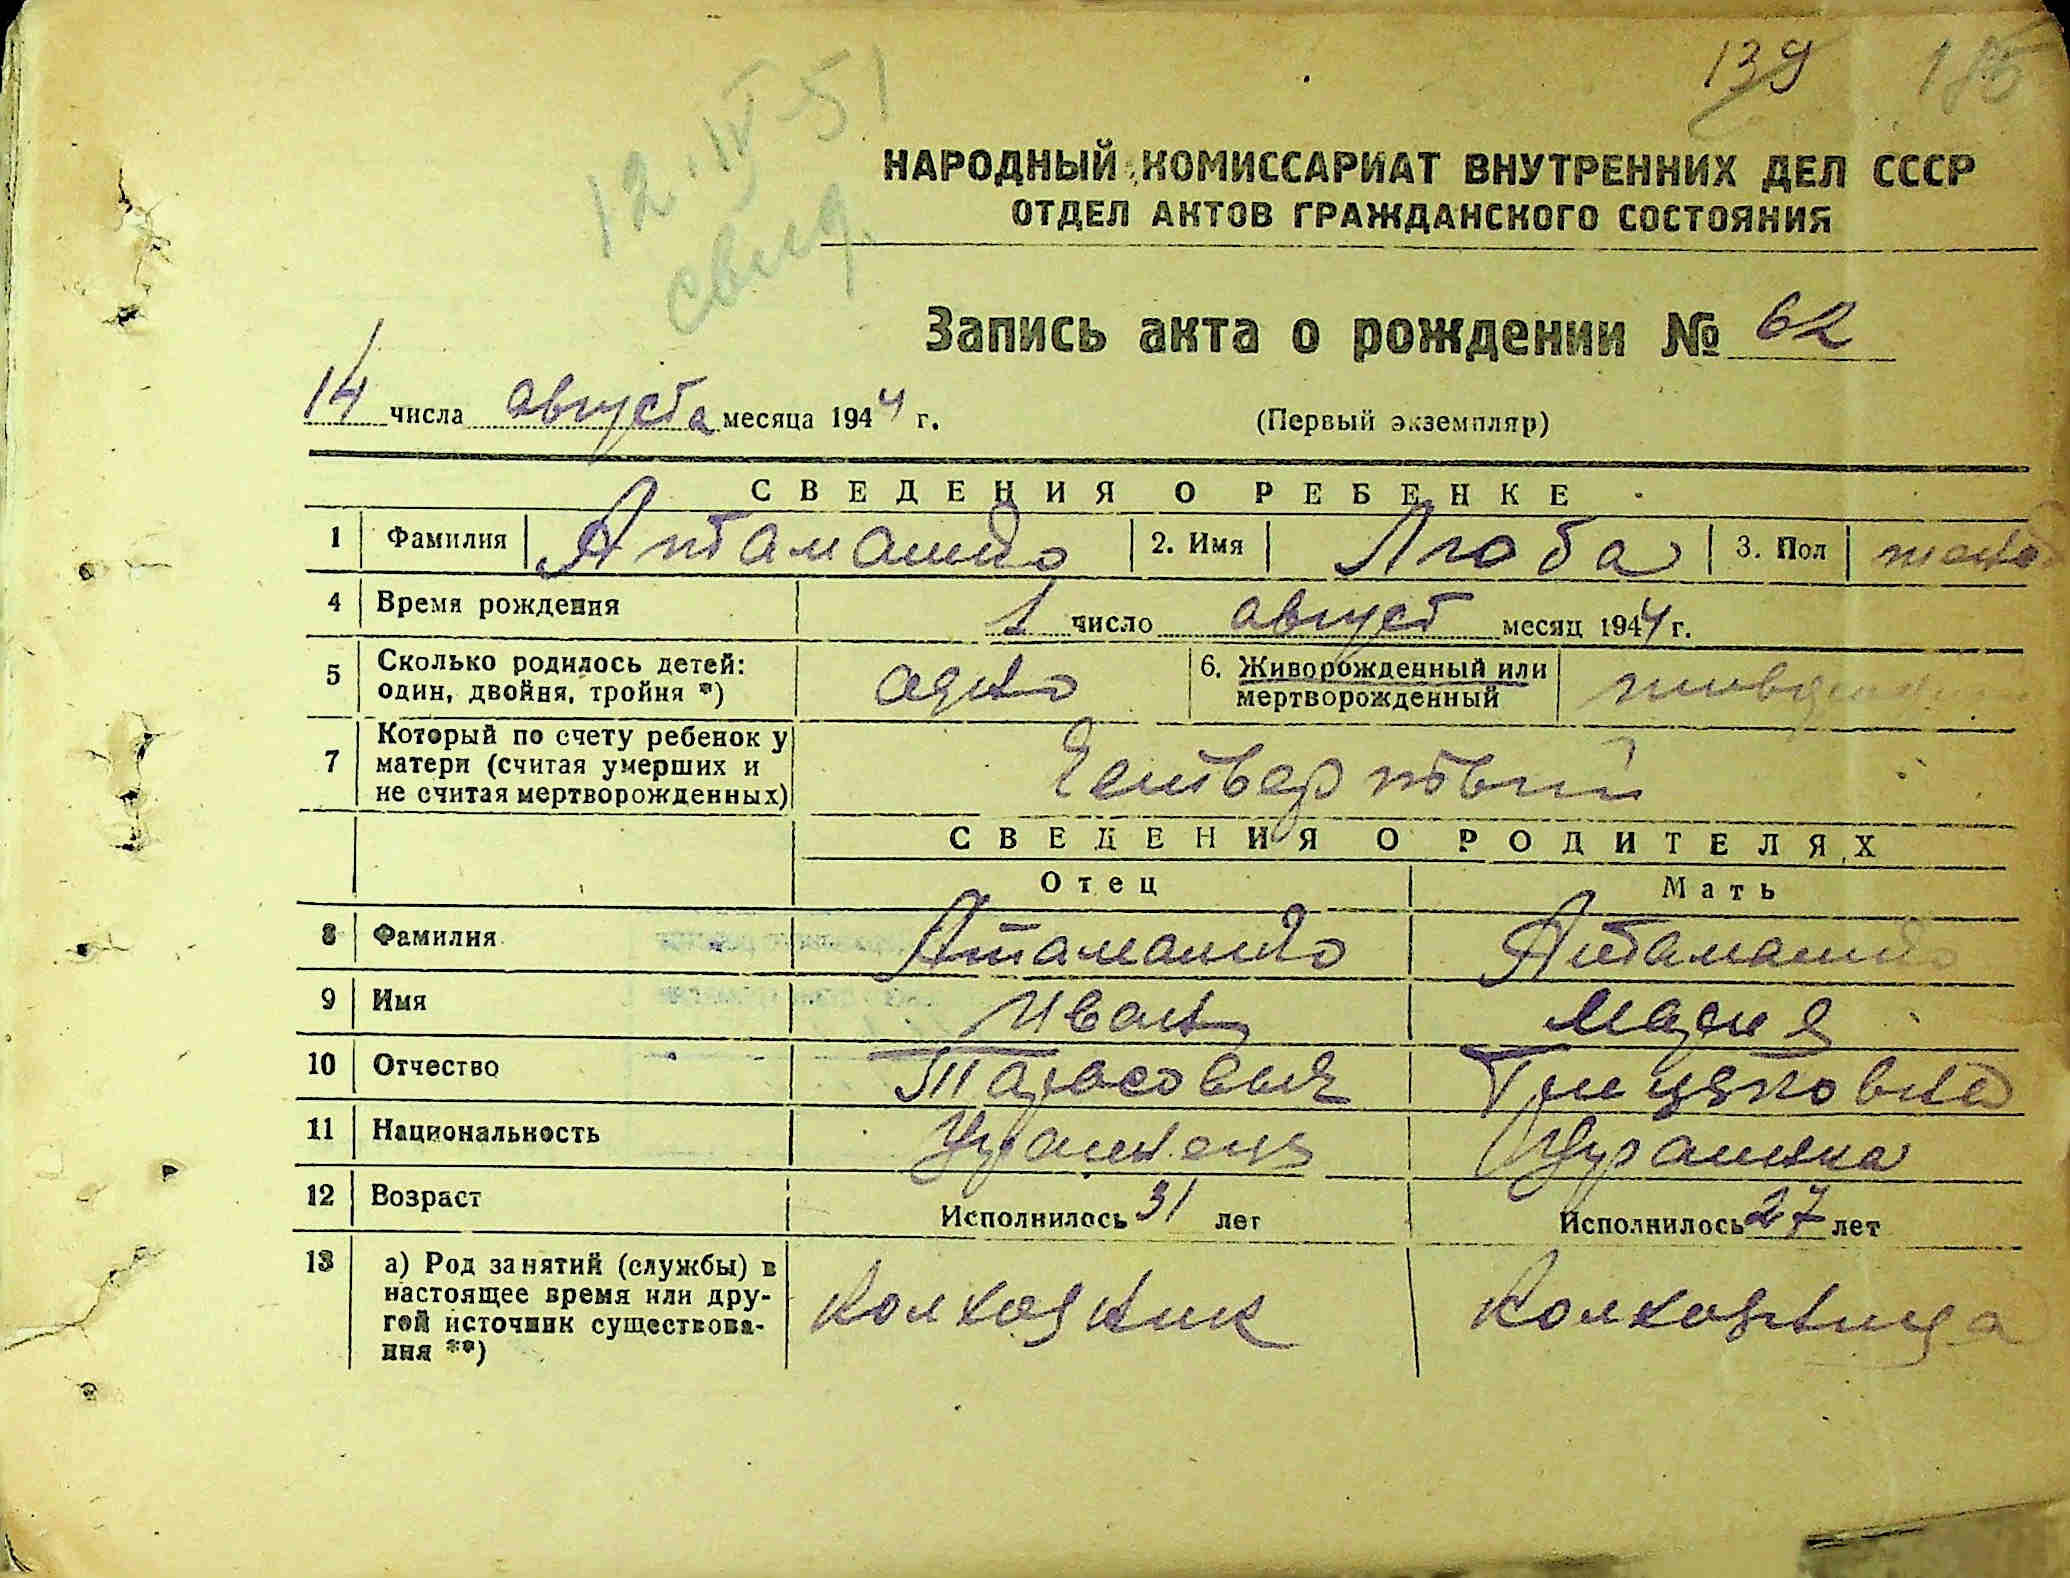 139 185
12.IV-51
свид.
НАРОДНЫЙ КОМИССАРИАТ ВНУТРЕННИХ ДЕЛ СССР
ОТДЕЛ АКТОВ ГРАЖДАНСКОГО СОСТОЯНИЯ
Запись акта о рождении № 62
14 числа августа месяца 1944 г. (Первый экземпляр)
СВЕДЕНИЯ О РЕБЕНКЕ
1 Фамилия Атаманко 2. Имя Люба 3. Пол
4 Время рождения 1 число август месяц 1944 г.
5 Сколько родилось детей: одно 6. Живорожденный или
один, двойня, тройня *) мертворожденный
7 Который по счету ребенок у
матери (считая умерших и Четвертый
не считая мертворожденных)
СВЕДЕНИЯ О РОДИТЕЛЯХ
Отец Мать
8 Фамилия Атаманко Атаманко
9 Имя Иван Мария
10 Отчество Тарасович
11 Национальность Украинец Украинка
12 Возраст Исполнилось 31 лет Исполнилось 27 лет
13 а) Род занятий (службы) в
настоящее время или дру- Колхозник Колхозница
гой источник существова-
ния **)